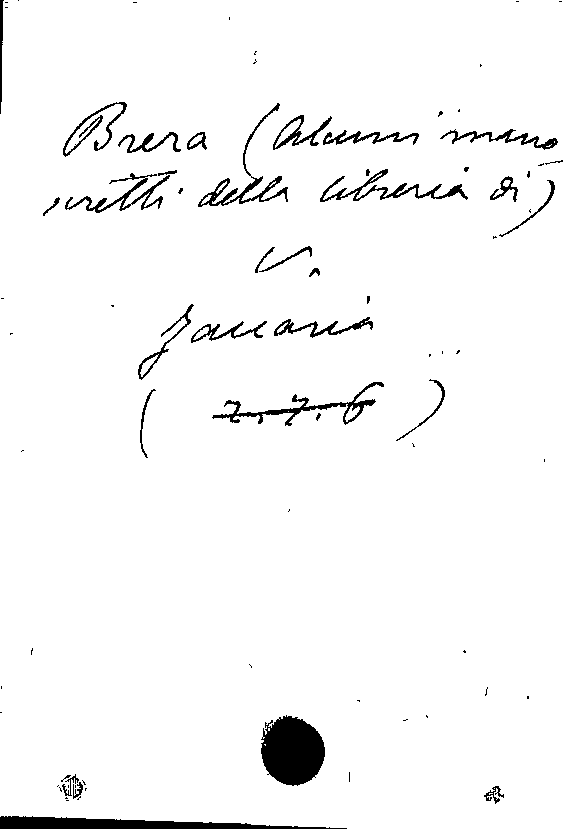 Brera (Alcuni mano
scritti della libreria di)
V.
Zaccaria
( 7. 7. 6 )